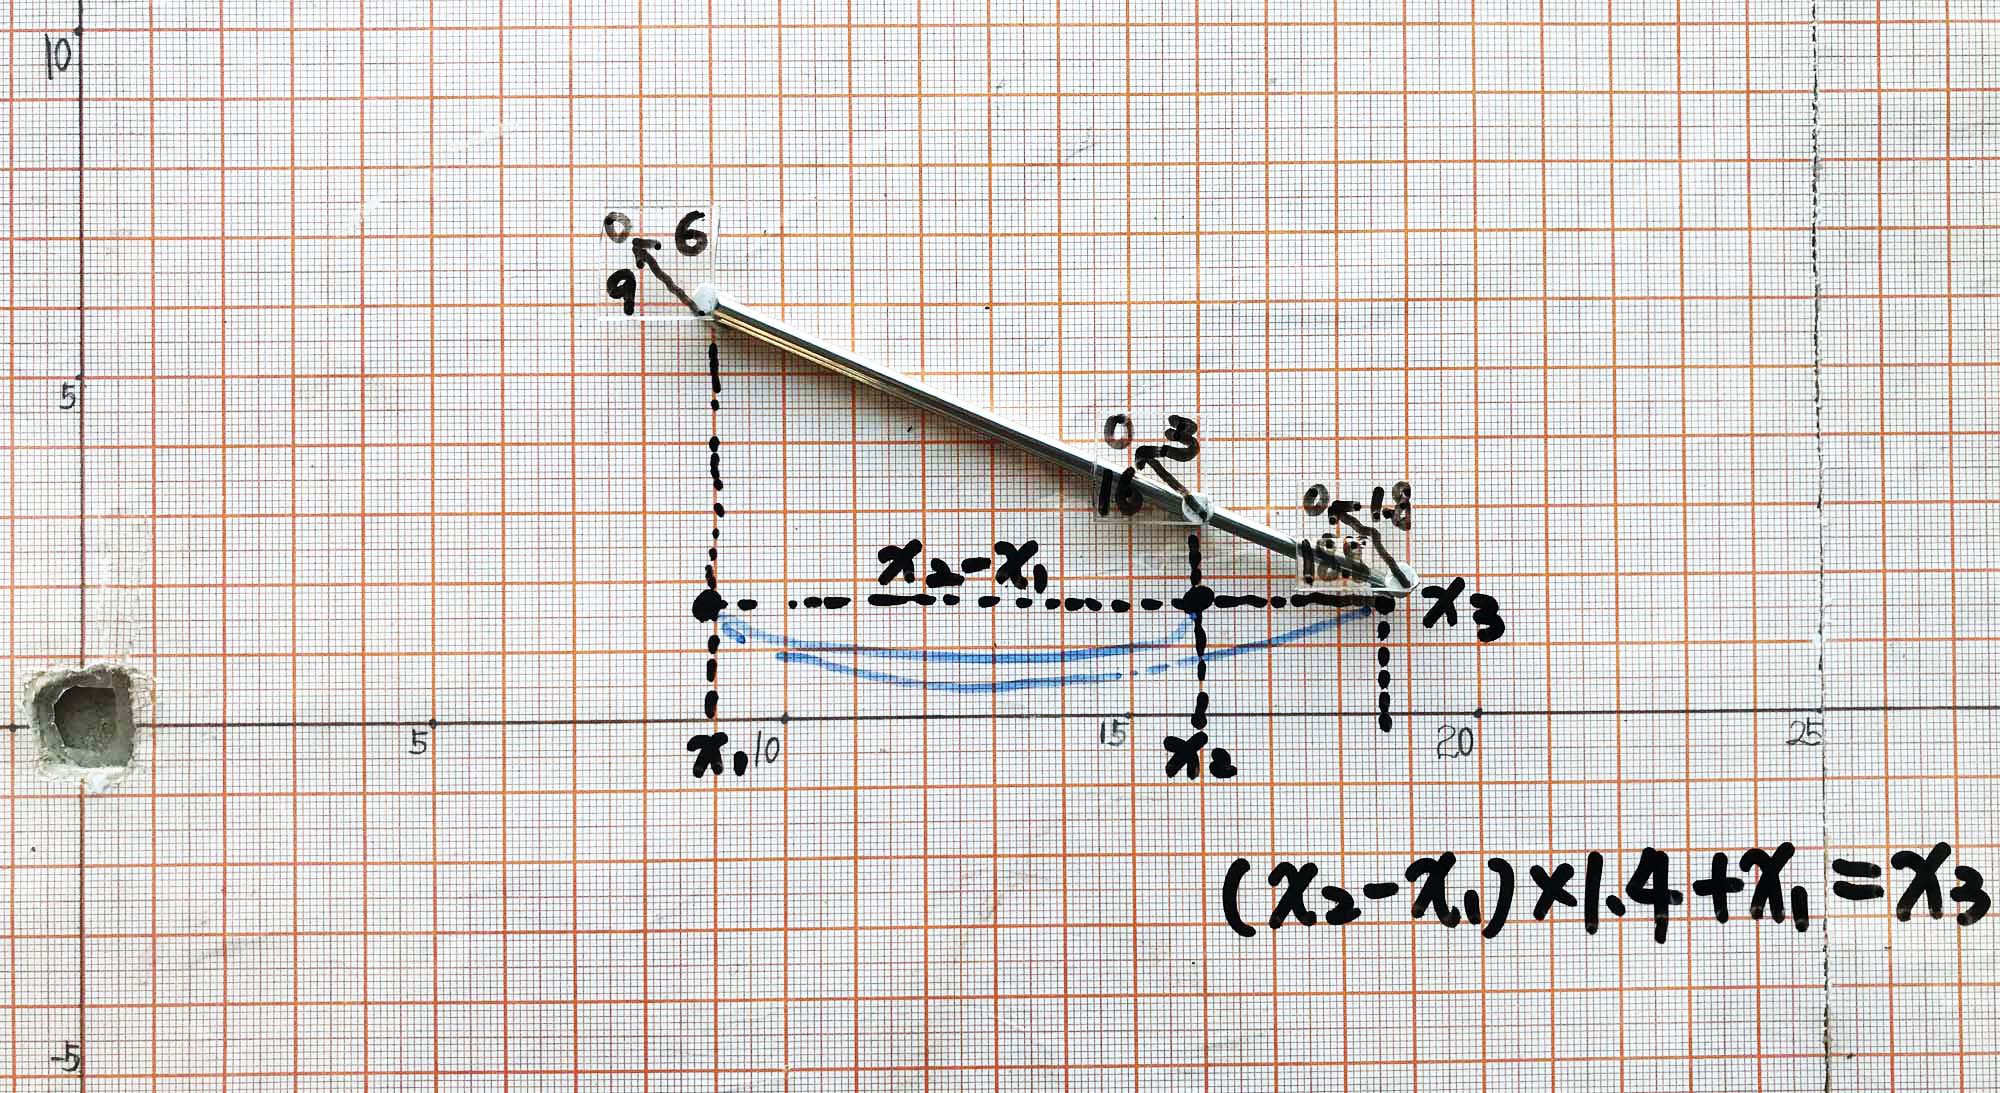 10
0 6
9
5
0 3
16
0 1.8
18.8
x₂-x₁
x₃
5
x₁
10
15
x₂
20
25
(x₂-x₁)×1.4+x₁=x₃
-5